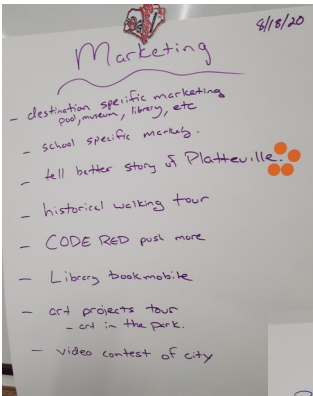 8/18/20
Marketing
- destination specific marketing
pool, museum, library, etc
- school specific market.
- tell better story of Platteville.
- historical walking tour
- CODE RED push more
- Library bookmobile
- art projects tour
- art in the park.
- video contest of city